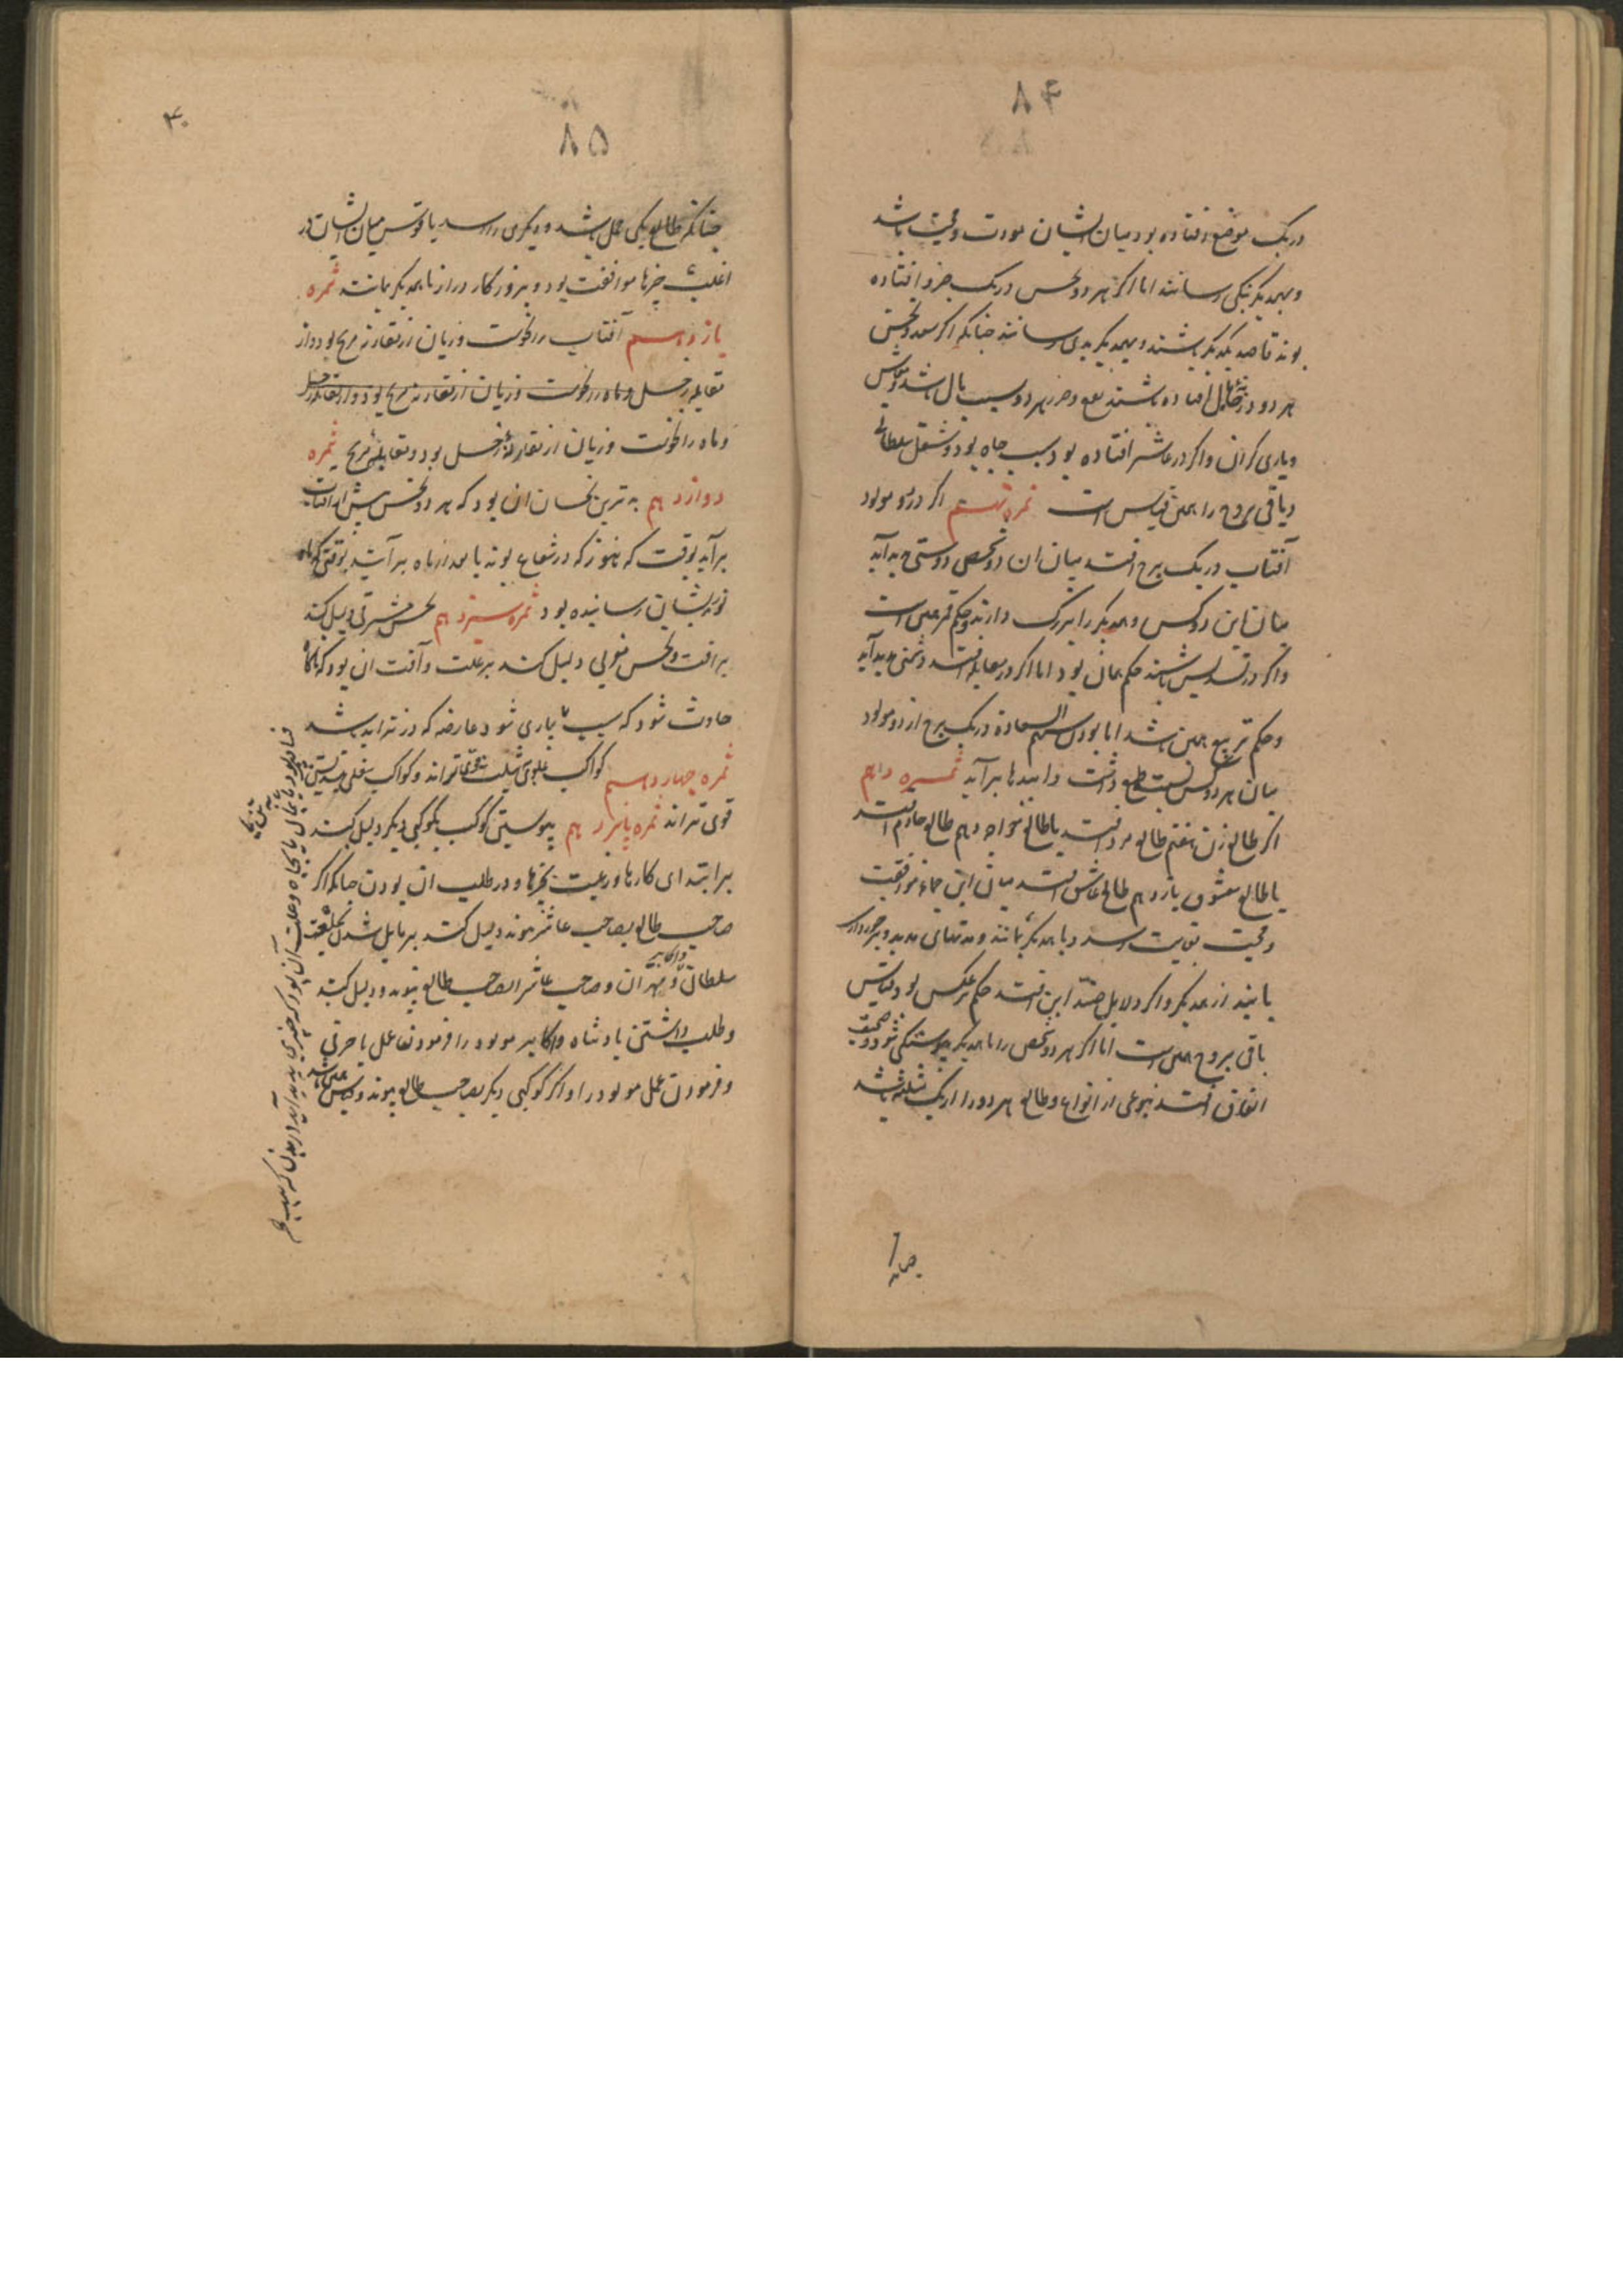 ۸۴
در یک موضع افتاده بود میان ایشان مودت و محبت باشد
و بهمدیگر نیکی رسانند اما اکر هر دو نحس در یک جزو افتاده
بوند قاصد یکدیگر باشند و بهمدیگر بدی رسانند چنانکه اکر سعد و نحس
هر دو در باشند نفع و ضرر هر دو بسبب مال باشد
و یاری کران و اکر در عاشر افتاده بود بسبب جاه بود و شغل سلطانی
و باقی بروج را همین قیاس است ثمره نهم اکر در دو مولود
آفتاب در یک برج افتد میان ان دو شخص دوستی پدید آید
میان این دو کس و همدیگر را بزرک دارند و حکم قمر همین است
و اکر در تسدیس باشند حکم همان بود اما اکر در مقابله افتد دشمنی پدید آید
و حکم تربیع همین باشد اما بودن سهم السعادة در یک برج از دو مولود
میان هر دو کس بسبب طمع داشت و امیدها برآید ثمره دهم
اکر طالع زن هفتم طالع مرد افتد یا طالع خواجه دهم طالع خادم افتد
یا طالع معشوق یازدهم طالع عاشق افتد میان این جماعه موافقت
و محبت بغایت رسد و با همدیکر بمانند و مدتهای مدید و برخورداری
یابند از همدیکر و اکر دلایل ضد این افتد حکم برعکس بود و قیاس
باقی بروج همین است اما اکر هر دو شخص را با همدیکر پیوستکی شود و صحبت
اتفاق افتد بنوعی از انواع و طالع هر دو را از یک مثلثه باشد
۸۵
۴۰
چنانکه طالع یکی حمل باشد و دیکری را اسد یا قوس میان ایشان در
اغلب چیزها موافقت بود و بروزکار دراز با همدیکر بمانند ثمره
یازدهم آفتاب را نحوست و زیان از مقارنه مریخ بود و از
مقابله زحل و ماه را نحوست و زیان از مقارنه مریخ بود و از مقابله زحل
و ماه را نحوست و زیان از مقارنه زحل بود و مقابله مریخ ثمره
دوازدهم بدترین نحسان ان بود که هر دو نحس پیش از افتاب
برآید بوقت که هنوز که در شعاع بوند یا بعد از ماه برآیند بوقتی که ماه
نور بدیشان رسانیده بود ثمره سیزدهم نحس مشرقی دلیل کند
بر افت و نحس مغربی دلیل کند بر علت و آفت ان بود که ناکاه
حادث شود که سبب بیماری شود عارضه که در تزاید باشد
ثمره چهاردهم کواکب علوی بتثلیث قوی تراند و کواکب سفلی بتسدیس
قوی تراند ثمره پانزدهم پیوستن کوکب بکوکبی دیکر دلیل کند
بر ابتدای کارها و رغبت بچیزها و در طلب ان بودن چنانکه اکر
صاحب طالع بصاحب عاشر پیوند دلیل کند بر مایل شدن بخدمت
سلطان و مهتران و صاحب عاشر بصاحب طالع پیوندد دلیل کند
و طلب داشتن پادشاه و اکابر مولود را و فرمودن عمل یا حرفتی
و فرمودن عمل مولود را و اکر کوکبی دیکر بصاحب طالع پیوند و قیاس همین باشد